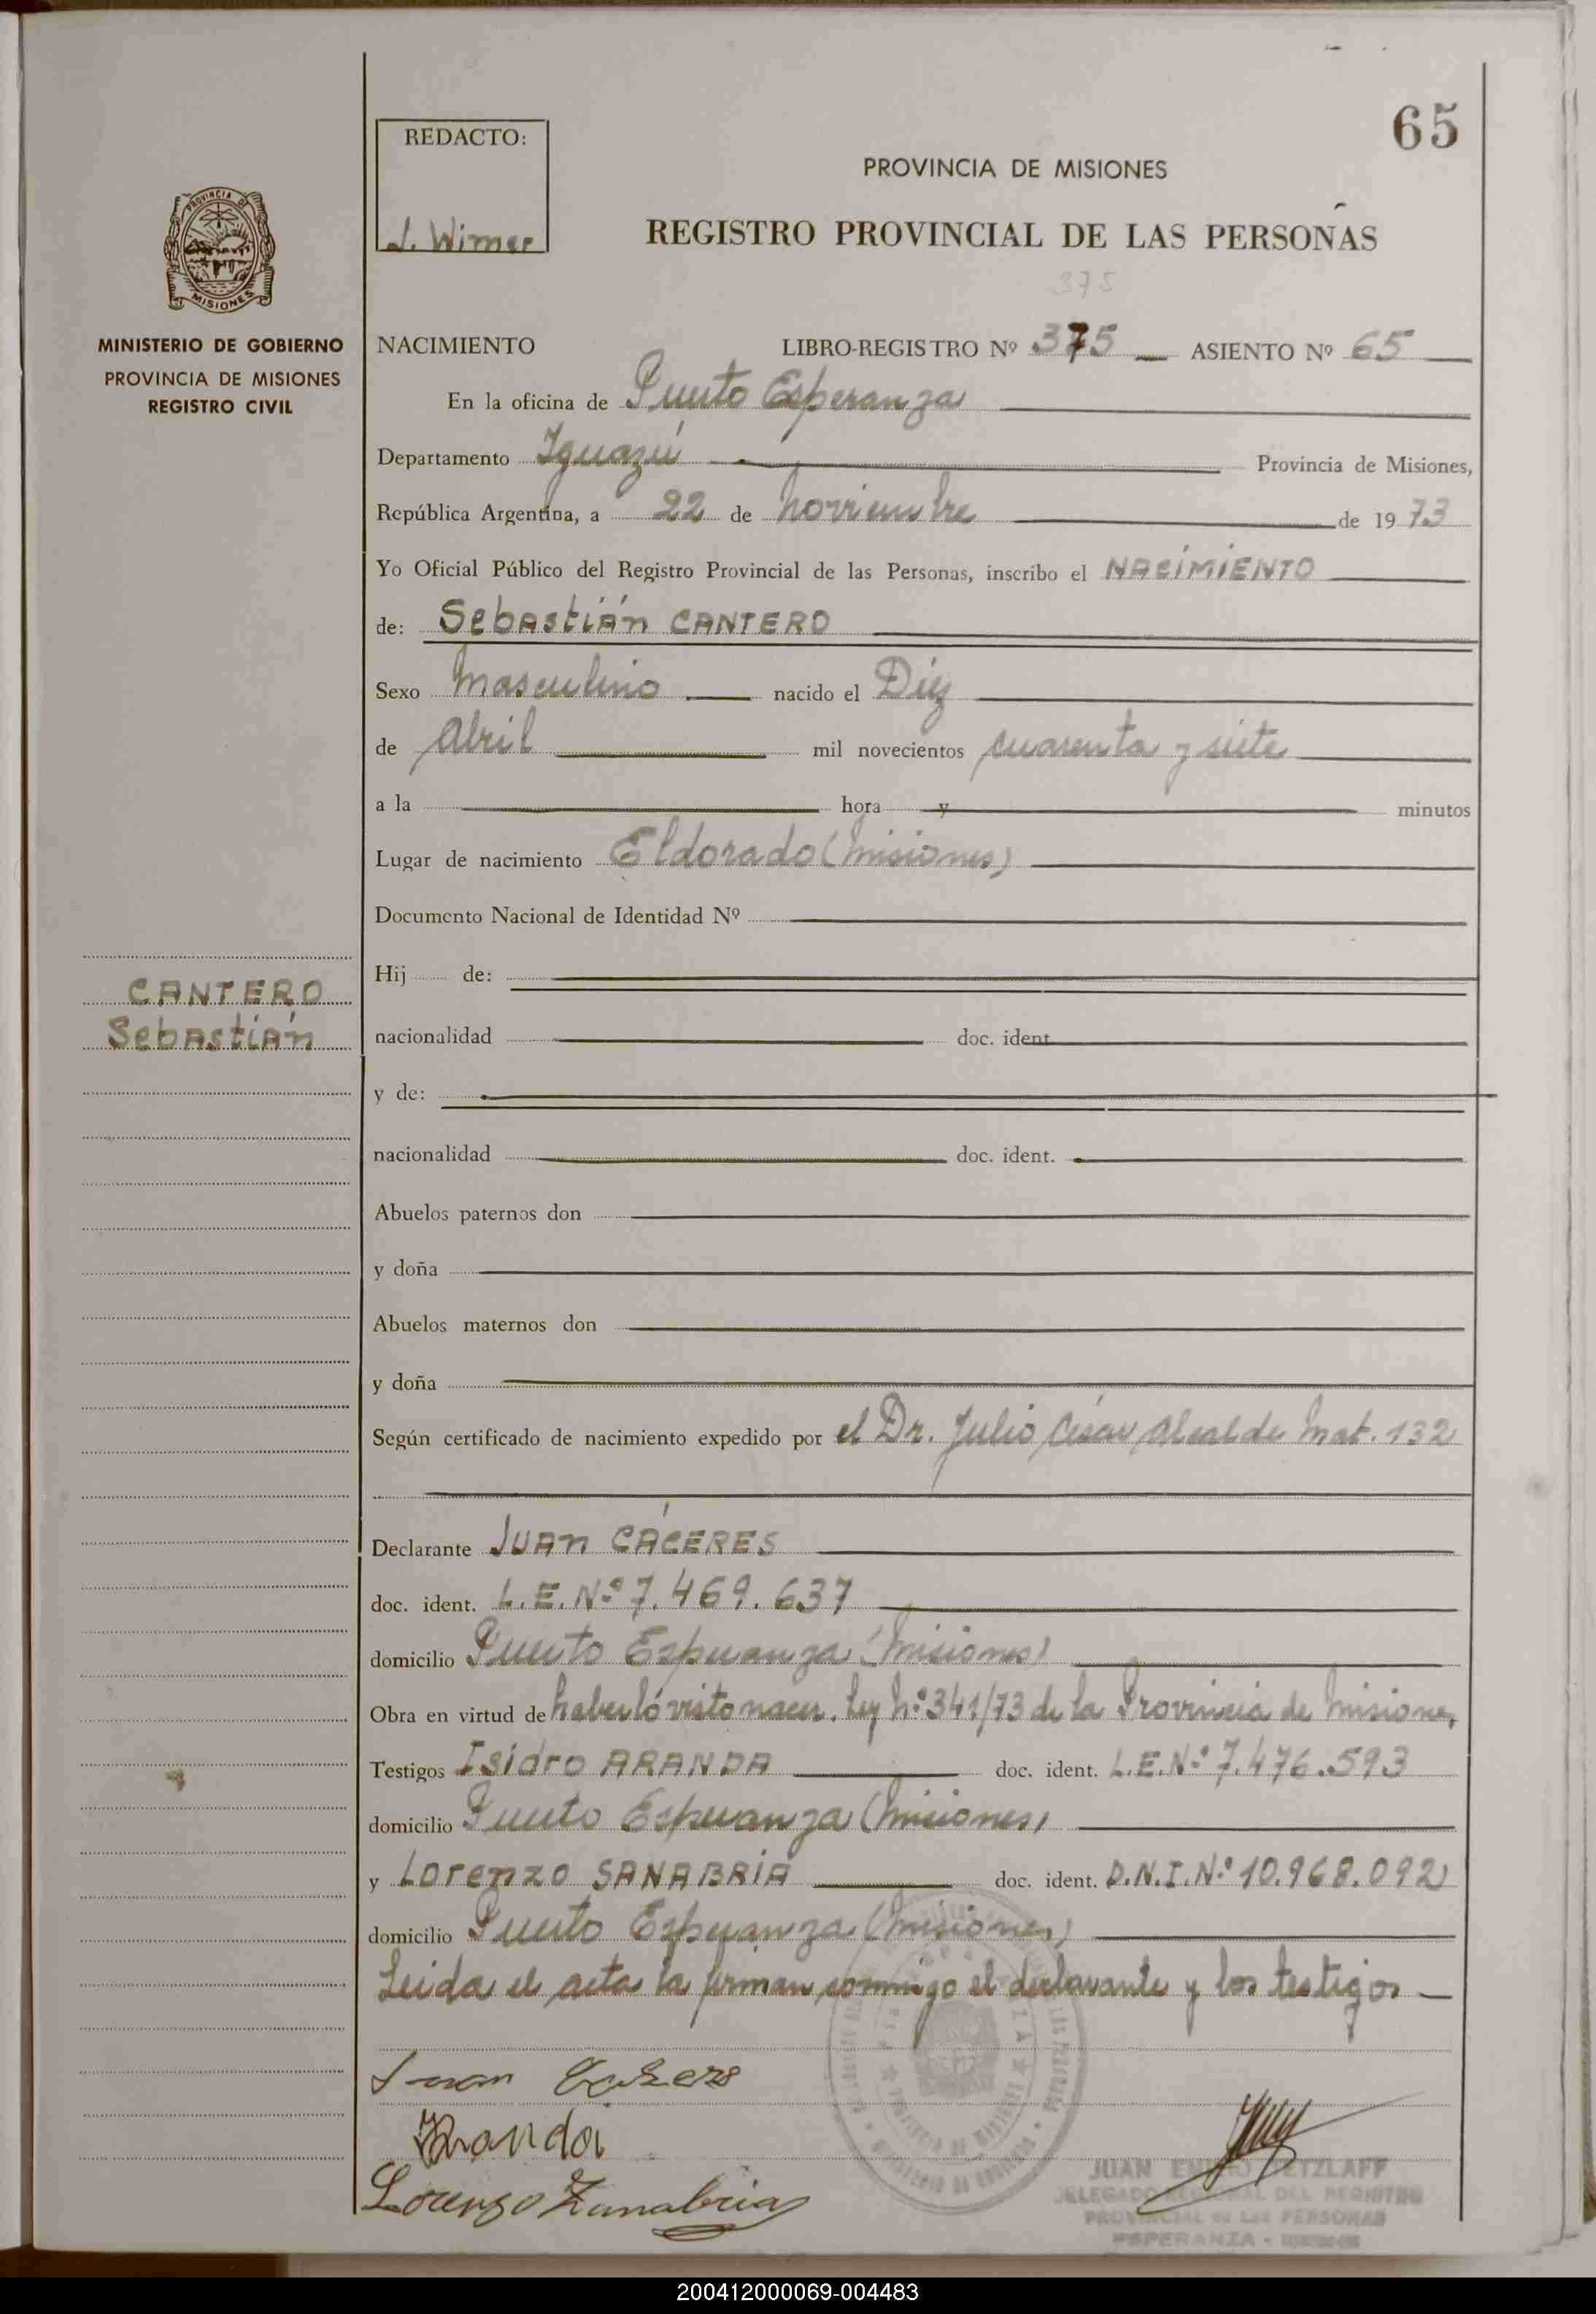 65
REDACTO:
J. Wimer
PROVINCIA DE MISIONES
REGISTRO PROVINCIAL DE LAS PERSONAS
375
PROVINCIA DE
MISIONES
MINISTERIO DE GOBIERNO
PROVINCIA DE MISIONES
REGISTRO CIVIL
NACIMIENTO LIBRO-REGISTRO Nº 375 ASIENTO Nº 65
En la oficina de Puerto Esperanza
Departamento Iguazú Provincia de Misiones,
República Argentina, a 22 de noviembre de 1973
Yo Oficial Público del Registro Provincial de las Personas, inscribo el NACIMIENTO
de: Sebastián CANTERO
Sexo Masculino nacido el Diez
de Abril mil novecientos cuarenta y siete
a la hora y minutos
Lugar de nacimiento Eldorado (Misiones)
Documento Nacional de Identidad Nº
Hij de:
CANTERO
Sebastián
nacionalidad doc. ident
y de:
nacionalidad doc. ident.
Abuelos paternos don
y doña
Abuelos maternos don
y doña
Según certificado de nacimiento expedido por el Dr. Julio César Alcalde Mat. 132
Declarante Juan CÁCERES
doc. ident. L.E.Nº 7.469.637
domicilio Puerto Esperanza (Misiones)
Obra en virtud de haberló visto nacer. Ley Nº 341/73 de la Provincia de Misiones
Testigos Isidro ARANDA doc. ident. L.E.Nº 7.476.593
domicilio Puerto Esperanza (Misiones)
y Lorenzo SANABRIA doc. ident. D.N.I.Nº 10.968.092
domicilio Puerto Esperanza (Misiones)
Leida el acta la firman conmigo el declarante y los testigos
Juan
Aranda
Lorenzo Zanabria
JUAN
DELEGADO REGIONAL DEL REGISTRO
PROVINCIAL DE LAS PERSONAS
ESPERANZA -
200412000069-004483